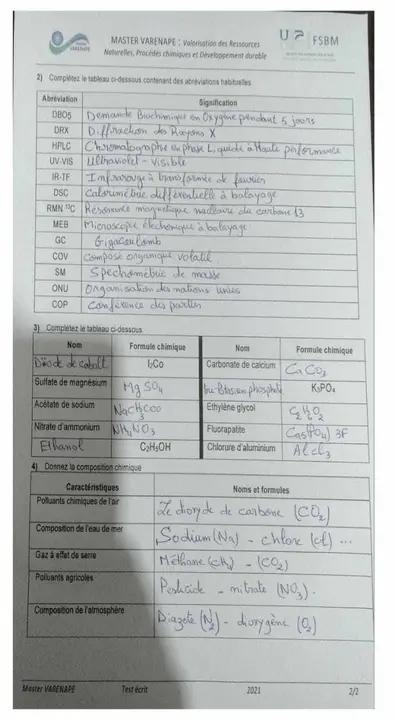 MASTER VARENAPE : Valorisation des Ressources
Naturelles, Procédés chimiques et Développement durable
VARENAPE
FSBM
2) Complétez le tableau ci-dessous contenant des abréviations habituelles
Abréviation Signification
DBO5 Demande Biochimique en Oxygène pendant 5 jours
DRX Diffraction des Rayons X
HPLC Chromatographie en phase Liquide à Haute performance
UV-VIS Ultraviolet - Visible
IR-TF Infrarouge à transformée de fourier
DSC Calorimétrie différentielle à balayage
RMN ¹³C Résonance magnétique nucléaire du carbone 13
MEB Microscopie électronique à balayage
GC Gigacoulomb
COV Composé organique volatil
SM Spechométrie de masse
ONU Organisation des nations unies
COP Conférence des parties
3) Complétez le tableau ci-dessous
Nom Formule chimique Nom Formule chimique
de cobalt I₂Co Carbonate de calcium CaCO₃
Sulfate de magnésium MgSO₄ phosphate K₃PO₄
Acétate de sodium NaCH₃COO Ethylène glycol
Nitrate d'ammonium NH₄NO₃ Fluorapatite Ca5(PO₄)3F
Ethanol C₂H₅OH Chlorure d'aluminium AlCl₃
4) Donnez la composition chimique
Caractéristiques Noms et formules
Polluants chimiques de l'air Le dioxyde de carbone (CO₂)
Composition de l'eau de mer Sodium (Na) - chlore (cl) ...
Gaz à effet de serre Méthane (CH₄) - (CO₂)
Polluants agricoles Pesticide - nitrate (NO₃).
Composition de l'atmosphère Diazote (N₂) - dioxygène (O₂)
Master VARENAPE Test écrit 2021 2/2